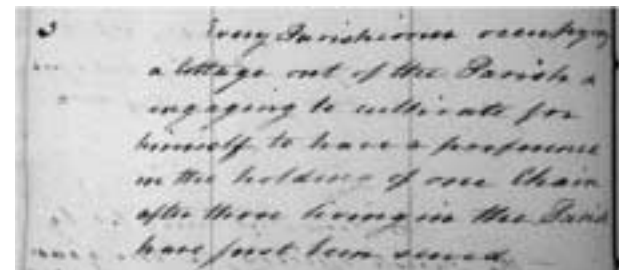 3 Every Parishioner occupying
a Cottage out of the Parish &
engaging to cultivate for
himself to have a preference
in the holding of one Chain
after those living in the Parish
have first been served.